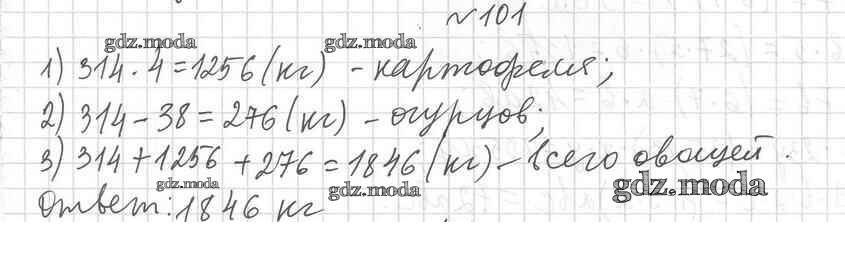 №101
gdz.moda gdz.moda
1) 314 · 4 = 1256 (кг) - картофеля;
2) 314 - 38 = 276 (кг) - огурцов;
3) 314 + 1256 + 276 = 1846 (кг) - всего овощей.
gdz.moda gdz.moda gdz.moda
Ответ: 1846 кг